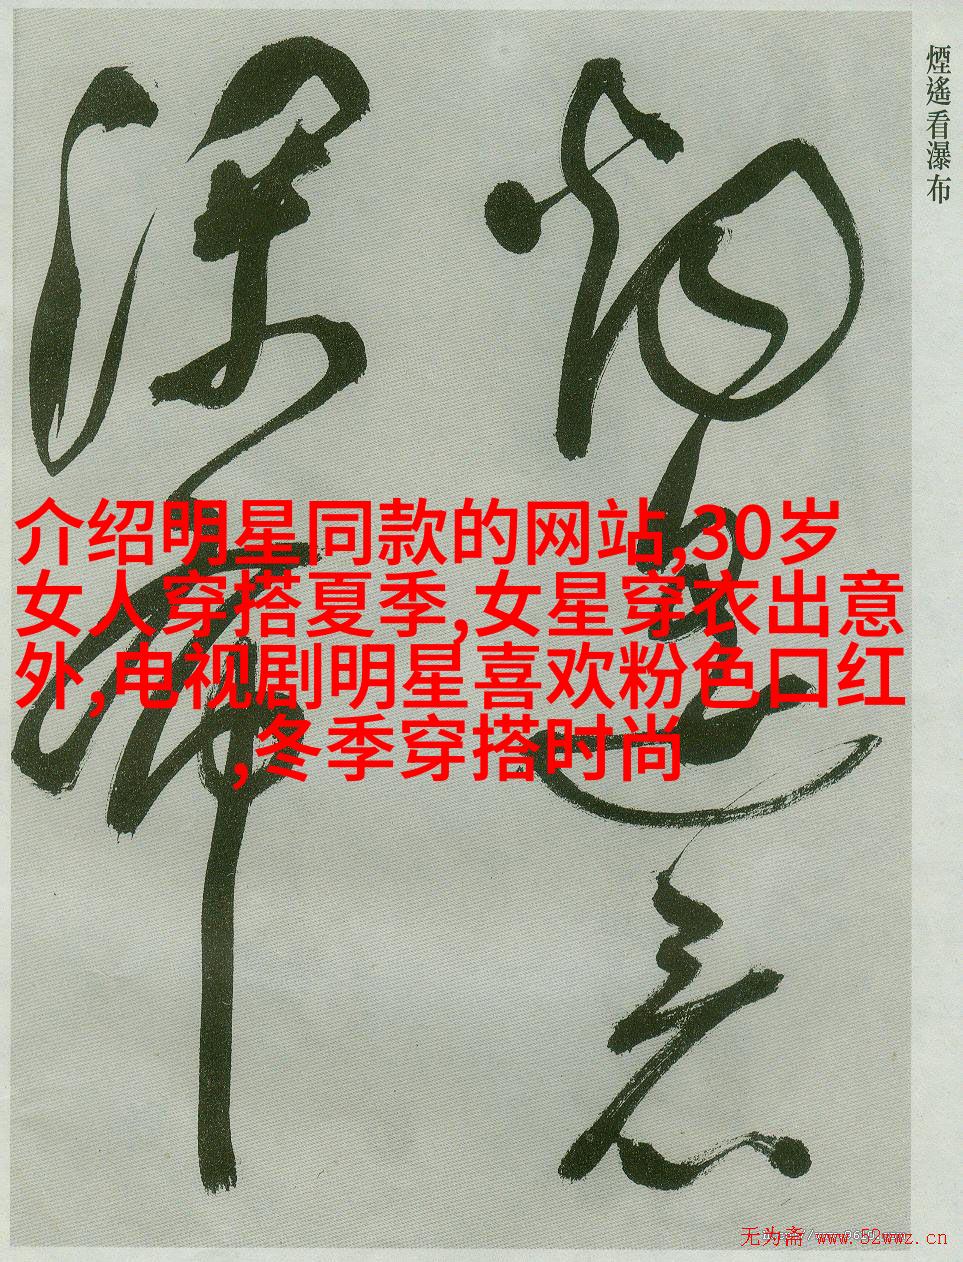 煙遙看瀑布
烟遥看
瀑布
介绍明星同款的网站,30岁
女人穿搭夏季,女星穿衣出意
外,电视剧明星喜欢粉色口红
,冬季穿搭时尚
无为斋 www.52wwz.cn